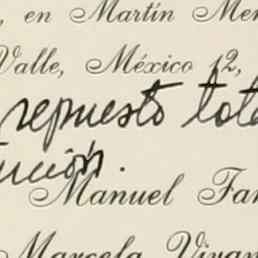 , en Martín Men
Valle, México 12,
repuesto tota
ución.
Manuel Far
Marcela Vivan